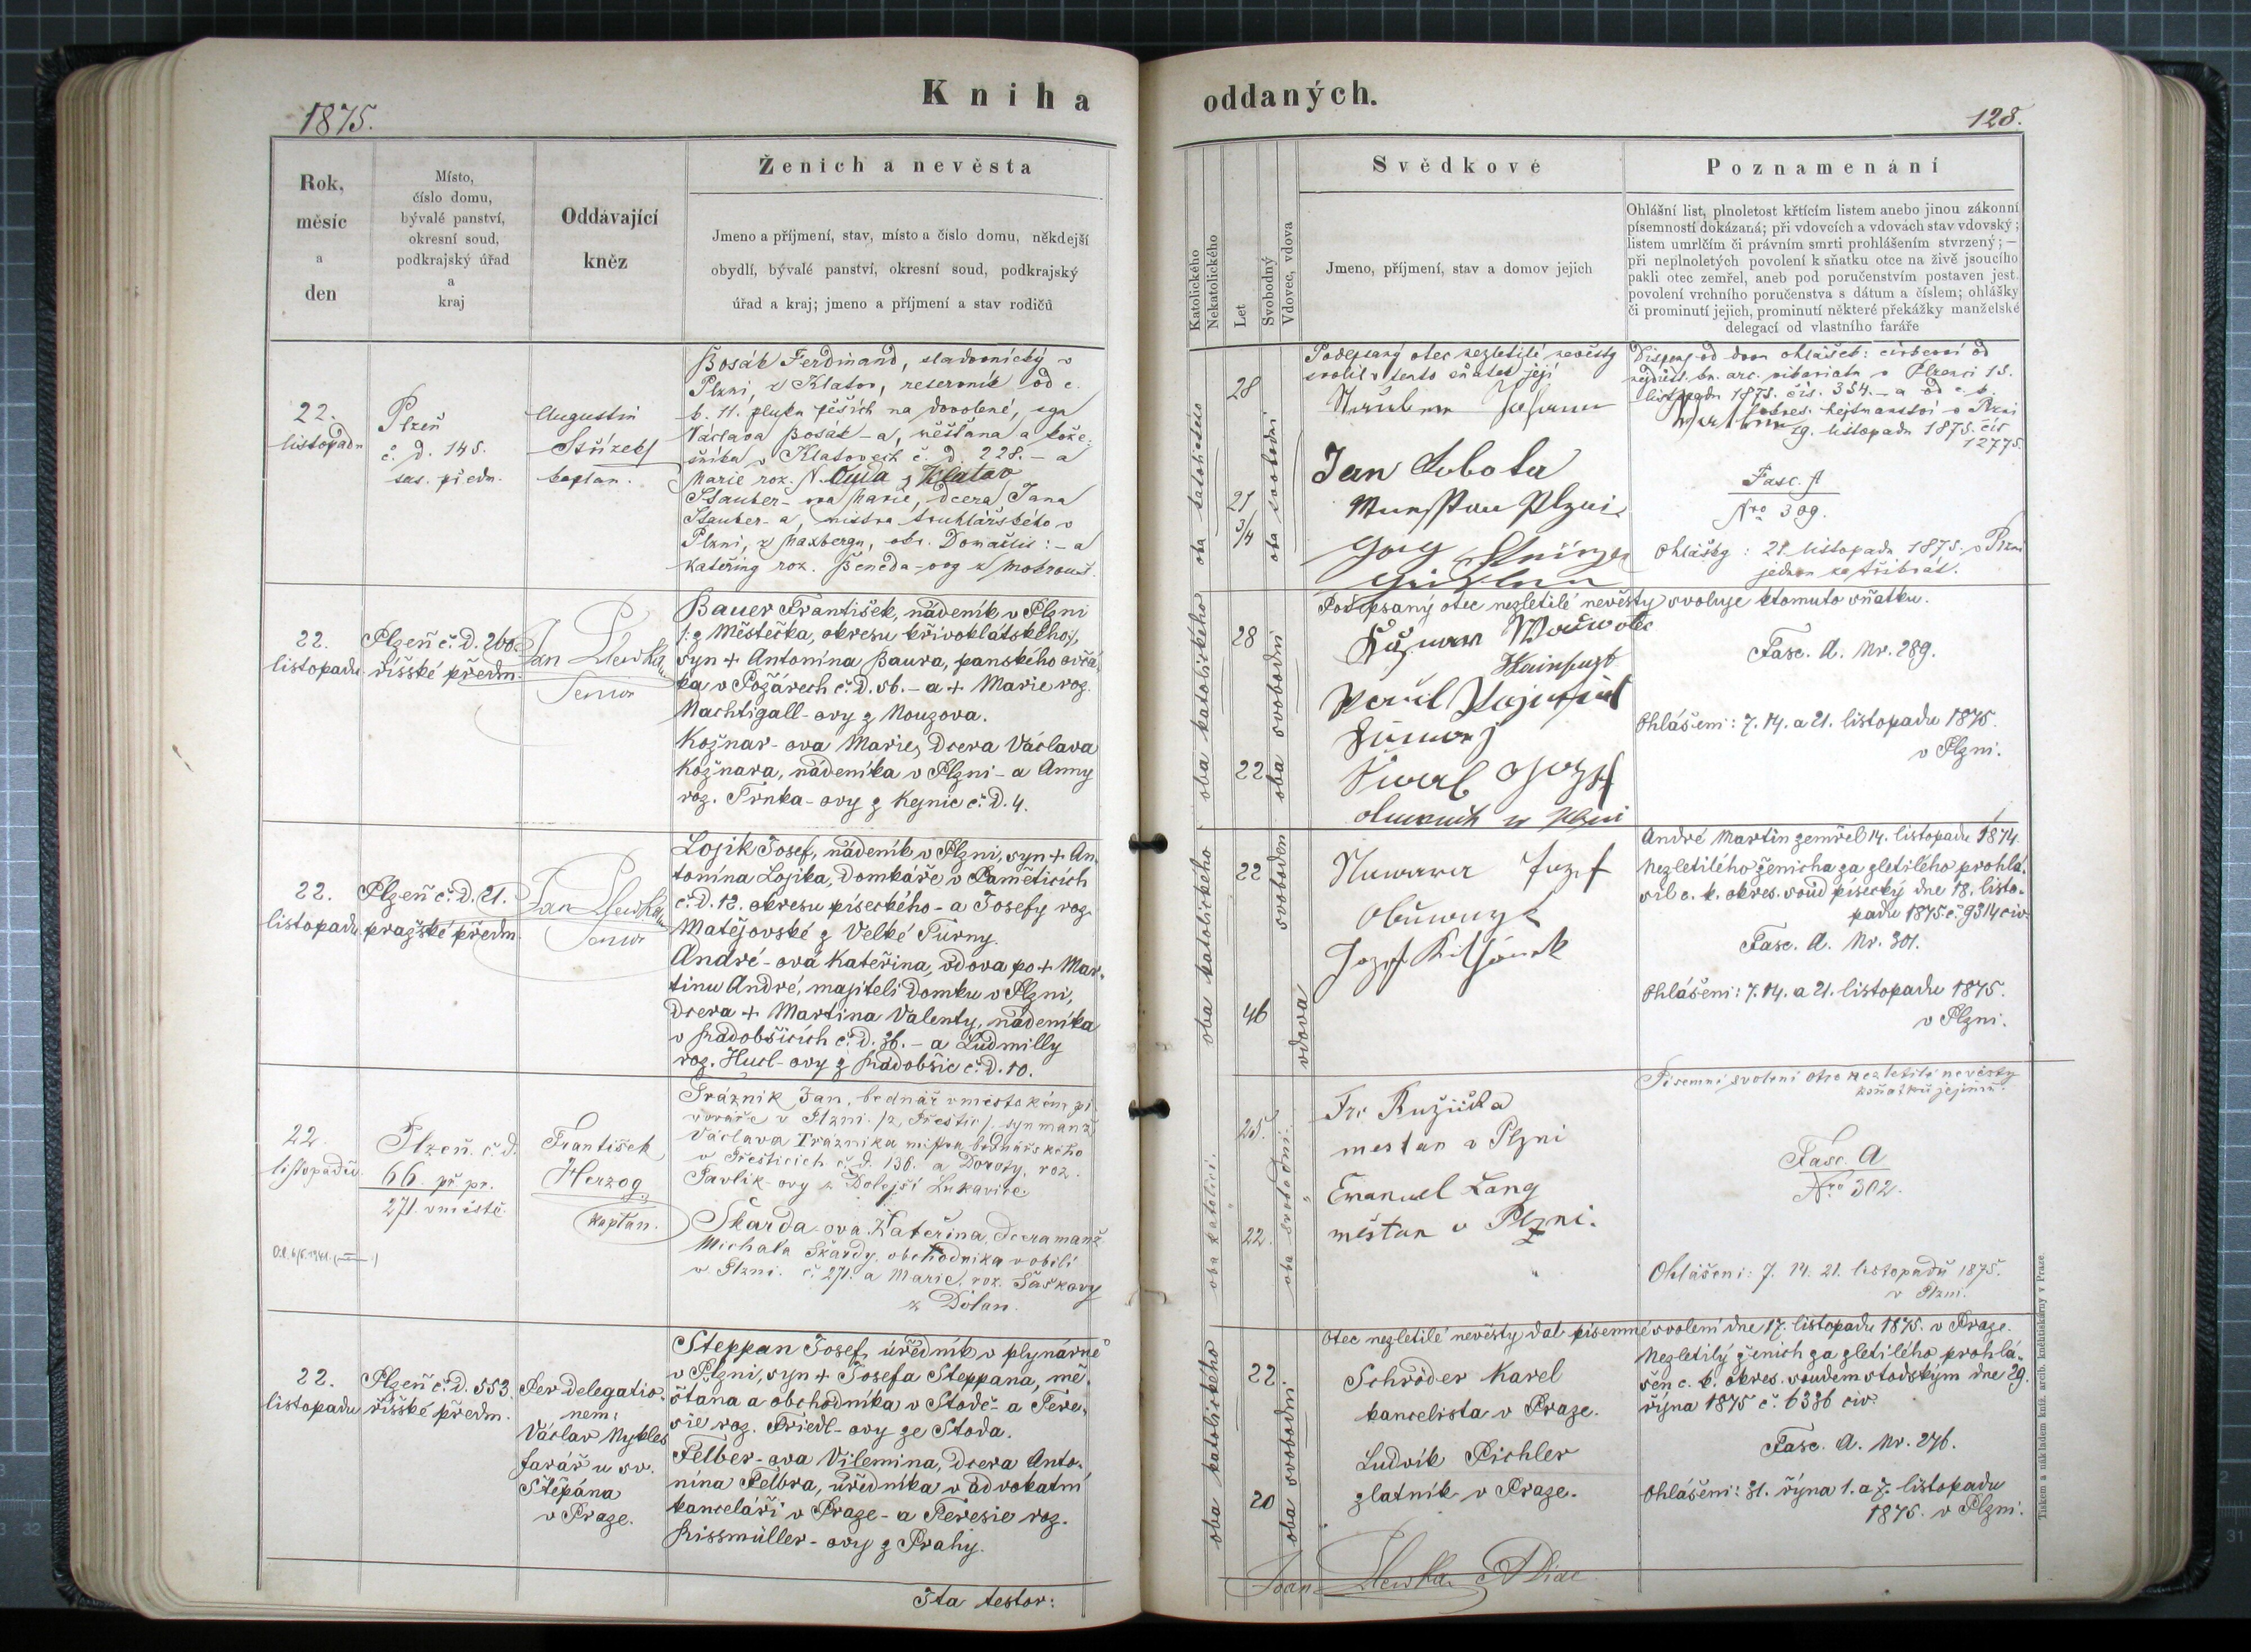 Kniha
1875.
Rok,
měsíc
a
den
Místo,
číslo domu,
bývalé panství,
okresní soud,
podkrajský úřad
a
kraj
Oddávající
kněz
Ženich a nevěsta
Jmeno a příjmení, stav, místo a číslo domu, někdejší
obydlí, bývalé panství, okresní soud, podkrajský
úřad a kraj; jmeno a příjmení a stav rodičů
22.
listopadu
Plzeň
č. d. 145.
sas. předm.
Augustin
Střízek
kaplan.
Bosák Ferdinand, sladovnický v
Plzni, z Klatov, reservník od c.
k. 11. pluku pěších na dovolené, syn
Václava Bosák-a, měšťana a kože-
šníka v Klatovech č. d. 228. - a
Marie roz. N. Ouda z Klatov
Stauber-ova Marie, dcera Jana
Stauber-a, mistra truhlářského v
Plzni, z Maxbergu, okr. Domažlic: - a
Kateřiny roz. Beneda-ovy z Mokrouš.
22.
listopadu
Plzeň č. D. 260.
říšské předm.
Jan Slewka
Senior
Bauer František, nádeník v Plzni
/: z Městečka, okresu křivoklátského:/,
syn + Antonína Baura, panského ovčá-
ka v Požárech č. D. 56. - a + Marie roz.
Nachtigall-ovy z Nouzova.
Kožnar-ova Marie, dcera Václava
Kožnara, nádeníka v Plzni - a Anny
roz. Trnka-ovy z Kejnic č. D. 4.
22.
listopadu
Plzeň č. D. 21.
pražské předm.
Jan Slewka
Senior
Lojík Josef, nádeník v Plzni, syn + An-
tonína Lojíka, domkáře v Paměticích
č. D. 12. okresu píseckého - a Josefy roz.
Matějovské z Velké Turny.
André-ová Kateřina, vdova po + Mar-
tinu André, majiteli domku v Plzni,
dcera + Martina Valenty, nádeníka
v Radobšicích č. d. 36. - a Ludmilly
roz. Hucl-ovy z Radobšic č. D. 10.
22.
listopadu.
Plzeň. č. d.
66. př pr.
271. v městě.
František
Herzog
kaplan.
Trázník Jan, bednář v městském pi-
vováře v Plzni. /z Přeštic/. syn manž
Václava Trázníka mistra bednářského
v Přešticích č. d. 136. a Doroty, roz.
Pavlík-ovy z Dolejší Lukavice.
Škarda-ova Kateřina, dcera manž.
Michala Škardy, obchodníka v obilí
v Plzni. č. 271. a Marie, roz. Šaškovy
z Dolan.
22.
listopadu
Plzeň č. D. 553.
říšské předm.
Per delegatio-
nem:
Václav Nykles
farář u sv.
Štěpána
v Praze.
Steppan Josef, úředník v plynárně
v Plzni, syn + Josefa Steppana, mě-
šťana a obchodníka v Stodě - a Tere-
sie roz. Friedl-ovy ze Stoda.
Felber-ova Vilemina, dcera Anto-
nína Felbra, úředníka v advokatní
kanceláři v Praze - a Teresie roz.
Rissmüller-ovy z Prahy.
Ita testor:
oddaných.
128.
Katolického
Nekatolického
Let
Svobodný
Vdovec, vdova
Svědkové
Jmeno, příjmení, stav a domov jejich
Poznamenání
Ohlášní list, plnoletost křtícím listem anebo jinou zákonní
písemností dokázaná; při vdovcích a vdovách stav vdovský;
listem umrlčím či právním smrti prohlášením stvrzený; —
při neplnoletých povolení k sňatku otce na živě jsoucího
pakli otec zemřel, aneb pod poručenstvím postaven jest.
povolení vrchního poručenstva s dátum a číslem; ohlášky
či prominutí jejich, prominutí některé překážky manželské
delegací od vlastního faráře
oba katolického
28
21
3/4
oba svobodni
Podepsaný otec nezletilé nevěsty
svolil v tento sňatek její
Johann
Jan Sobota
Plzni
Dispens od dvou ohlášek: církevní od
listopadu 1875. čís. 354. - a od c. k.
okres. hejtmanství v Plzni
listopadu 1875. čís
12775.
Fasc. A
Nro 309.
Ohlášky: 21 listopadu 1875. v Plzni
jednou za třikrát.
oba katolického
28
22
oba svobodni
Podepsaný otec nezletilé nevěsty svoluje k tomuto sňatku.
Fasc. A. Nr. 289.
Ohlášení: 7. 14. a 21. listopadu 1875.
v Plzni.
oba katolického
22
46
svoboden
vdova
Jozef
André Martin zemřel 14. listopadu 1874.
Nezletilého ženicha za zletilého prohlá-
sil c. k. okres. soud písecký dne 18. listo-
padu 1875. č. 9314 civ.
Fasc. A. Nr. 301.
Ohlášení: 7. 14. a 21. listopadu 1875.
v Plzni.
oba katolíci.
25.
22.
oba svobodni.
Fr. Ružička
mestan v Plzni
Emanuel Lang
měštan v Plzni.
Písemní svolení otce nezletilé nevěsty
k sňatku jejímu.
Fasc. A
Nro 302.
Ohlášení: 7. 14. 21. listopadu 1875.
v Plzni.
oba katolického
22
20
oba svobodni
Otec nezletilé nevěsty dal písemné svolení dne 17. listopadu 1875. v Praze.
Schröder Karel
kancelista v Praze.
Ludvík Pichler
zlatník v Praze.
Nezletilý ženich za zletilého prohlá-
šen c. k. okres. soudem stodským dne 29.
října 1875 č. 6336 civ.
Fasc. A. Nr. 276.
Ohlášení: 31. října 1. a 7. listopadu
1875. v Plzni.
Joan Slewka
Tiskem a nákladem kníž. arcib. knihtiskárny v Praze.